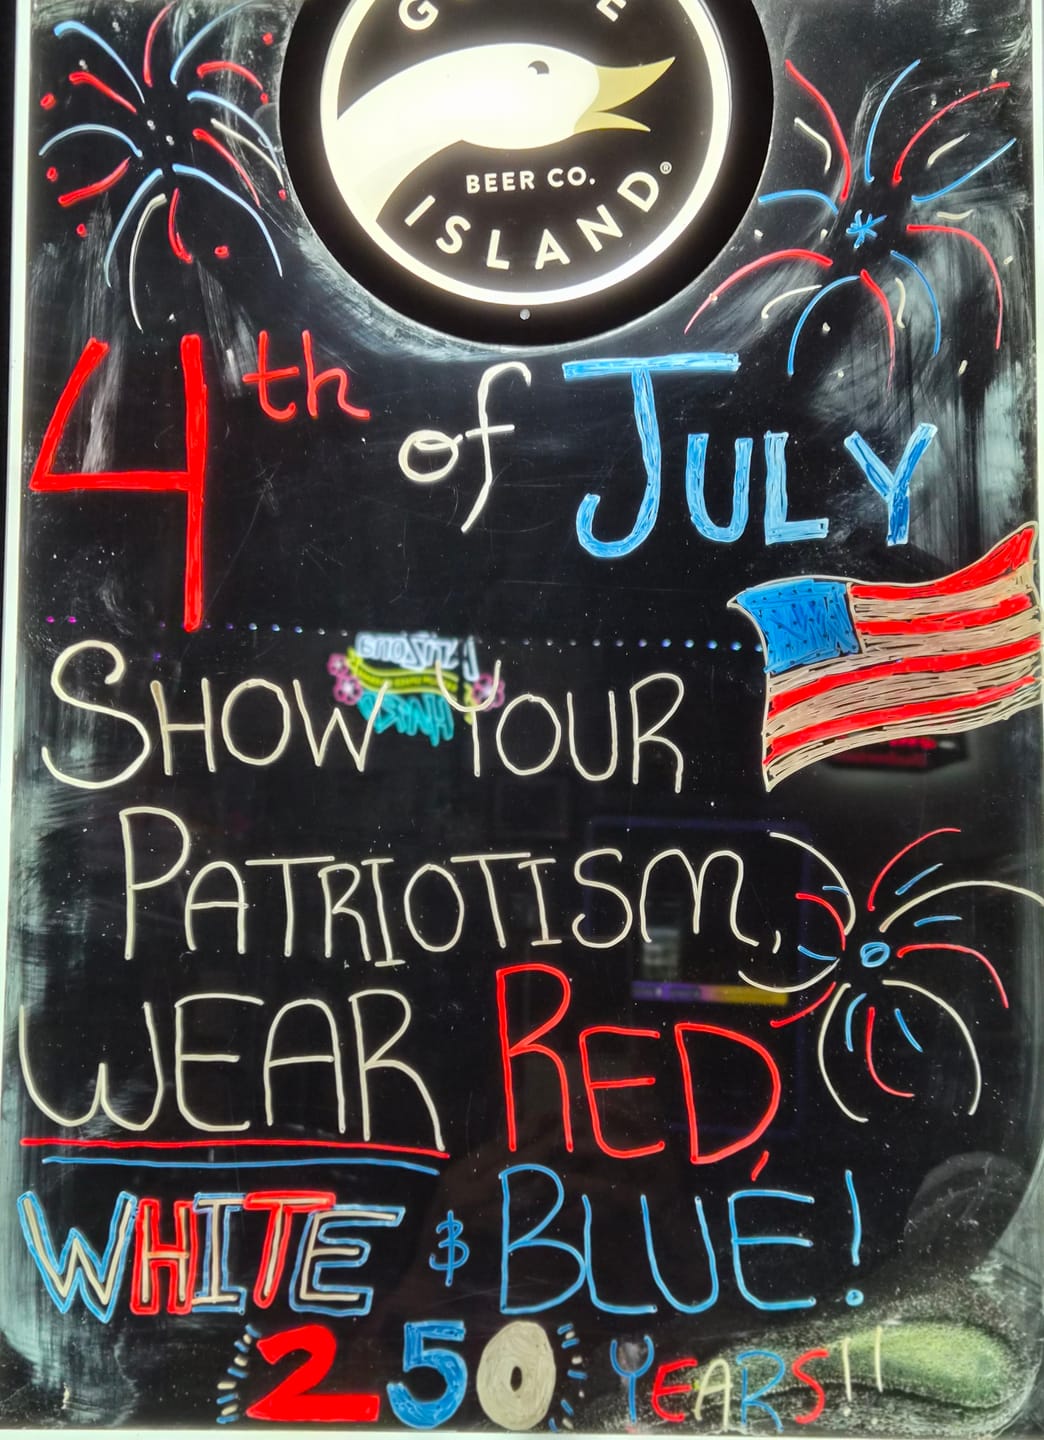 GOOSE
BEER CO.
ISLAND®
4th of JULY
SHOW YOUR
PATRIOTISM,
WEAR RED,
WHITE & BLUE!
250 YEARS!!